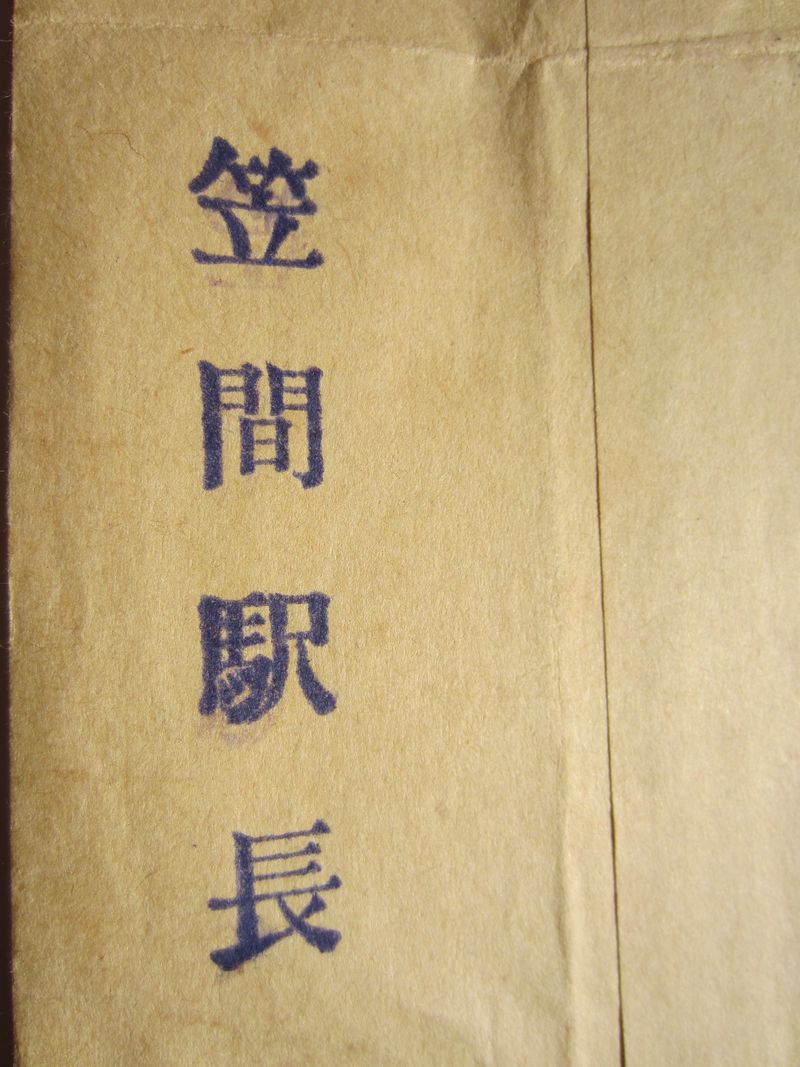 笠間駅長